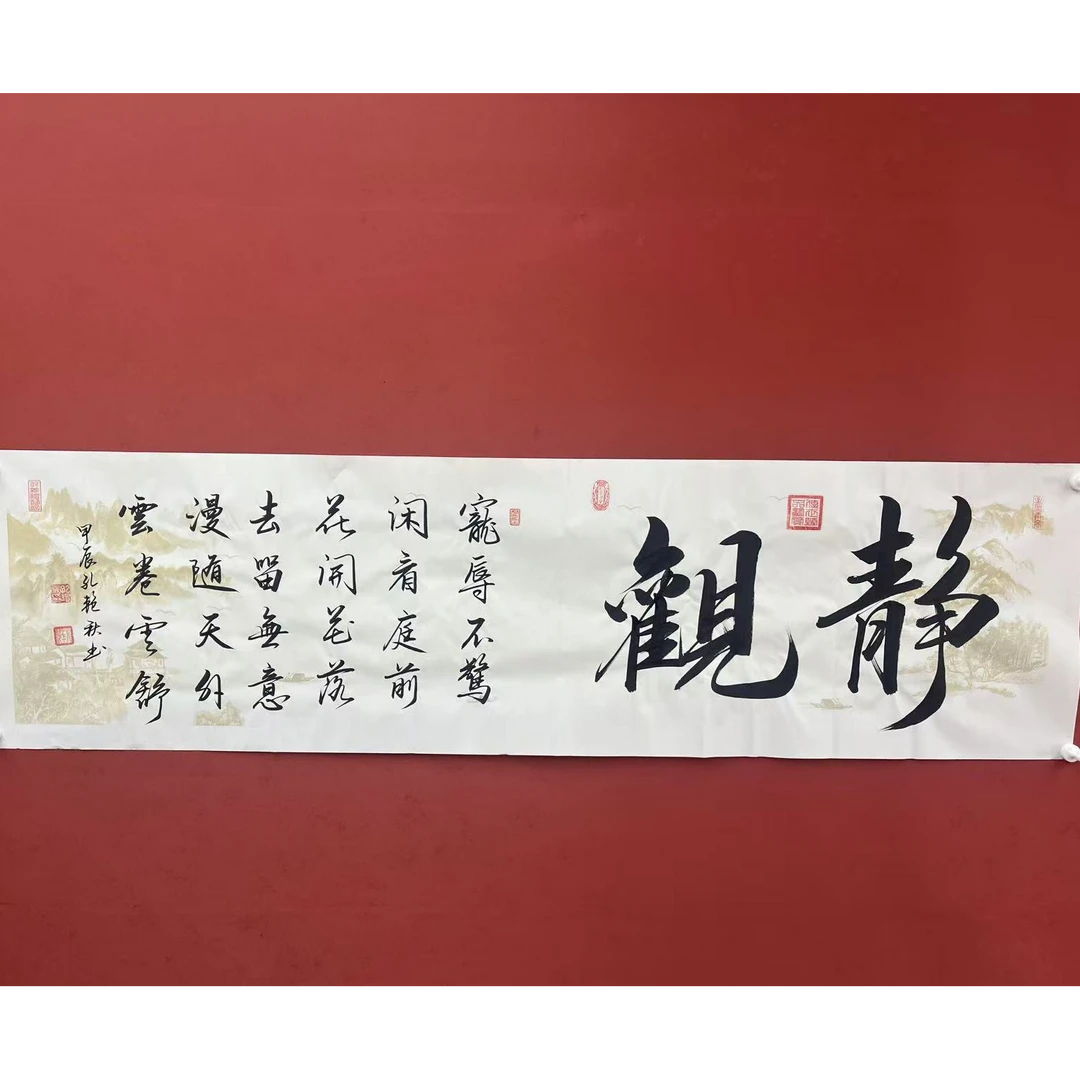 静觀
寵辱不驚
闲看庭前
花開花落
去留無意
漫随天外
雲卷雲舒
甲辰孔艳秋书